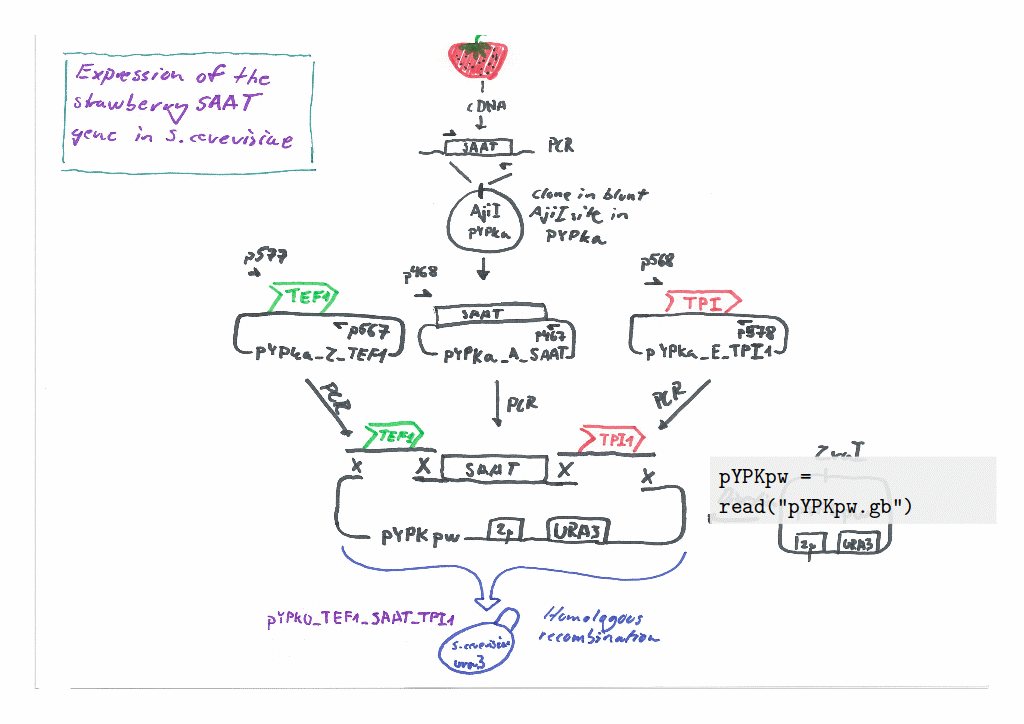 Expression of the
strawberry SAAT
gene in S. cerevisiae
cDNA
SAAT
PCR
AjiI
pYPKa
Clone in blunt
AjiI site in
pYPKa
p577
TEF1
p567
pYPKa_Z_TEF1
p468
SAAT
p467
pYPKa_A_SAAT
p568
TPI
p578
pYPKa_E_TPI1
PCR
PCR
PCR
TEF1
SAAT
TPI1
X
X
X
X
pYPKpw
2µ
URA3
pYPKpw =
read("pYPKpw.gb")
2µ
URA3
pYPK0_TEF1_SAAT_TPI1
Homologous
recombination
S. cerevisiae
ura3